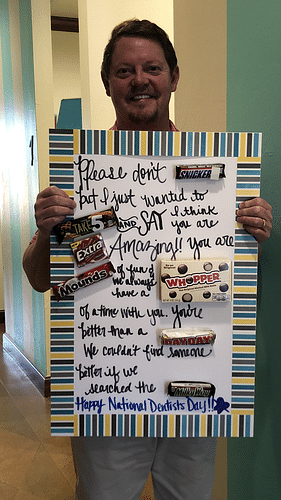 Please don't SNICKERS
but I just wanted to
TAKE 5 AND SAY I think you are
Extra Amazing!! You are
Mounds of fun & we always have a WHOPPER
of a time with you. You're
better than a PAYDAY
We couldn't find someone
better if we
searched the MILKY WAY
Happy National Dentists Day!!